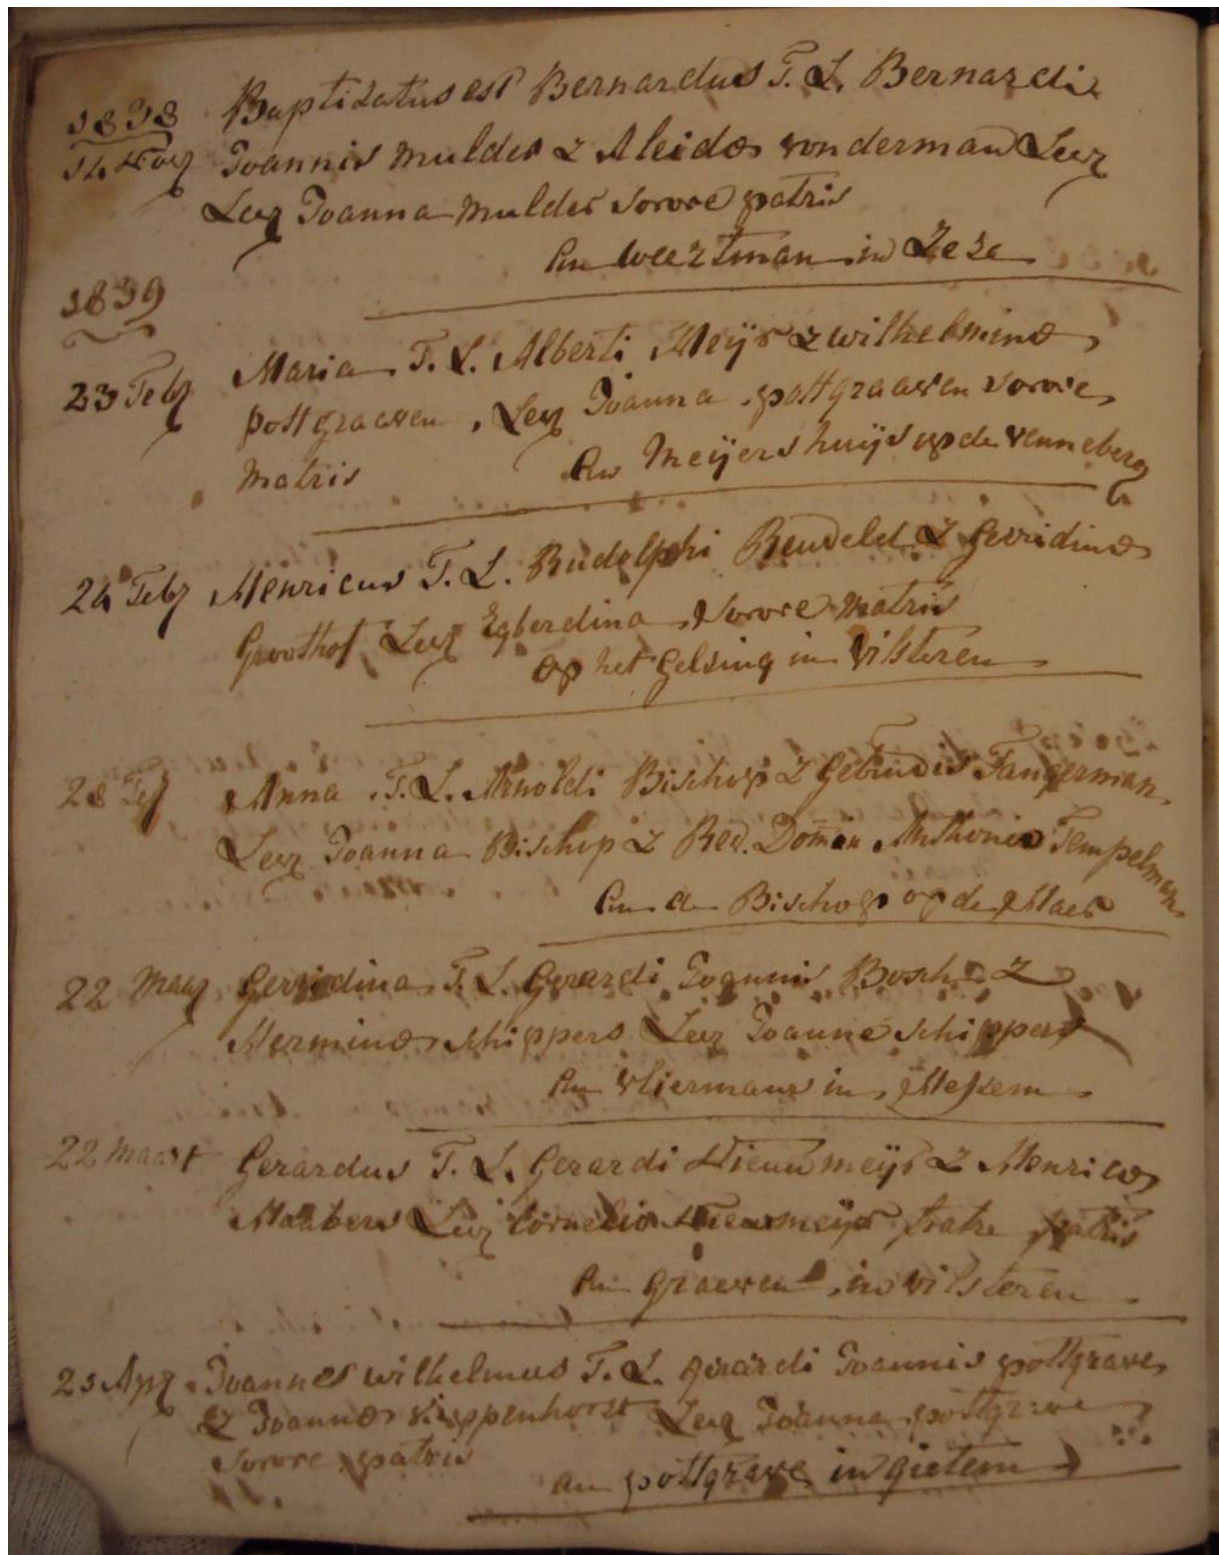 1838 Baptisatus est Bernardus F. L. Bernardi
14 Nov Joannis Mulder & Aleidæ Vonderman Lev
Lev Joanna Mulder Sorore patris
in Weertman in Zese
1839
23 Feb Maria F. L. Alberti Meijer & Wilhelminæ
Pottgraaven, Lev Joanna pottgraaven Sorore
Matris in Meijershuijs op de Venneberg
24 Feb Henricus F. L. Rudolphi Reuvelet & Gerridinæ
Groothof Lev Egberdina Sorore Matris
op het Gelsing in Vilsteren
28 Feb Anna F. L. Arnoldi Bischop & Gertrudis Tangerman
Lev Joanna Bischop & Rev. Domin Anthonio Tempelman
in de Bischop op de Maes
22 Maar Gerridina F. L. Gerardi Joannis Bosch &
Herminæ Schippers Lev Joanne Schippers
in Vliermans in
22 Maart Gerardus F. L. Gerardi Nieuwmeijer & Henricæ
Lev Cornelio Nieuwmeijer fratre patris
in Graeven in Vilsteren
25 Apr Joannes Wilhelmus F. L. Gerardi Joannis pottgrave
& Joannæ Lev Joanna pottgrave
Sorore patris an pottgrave in Gietem